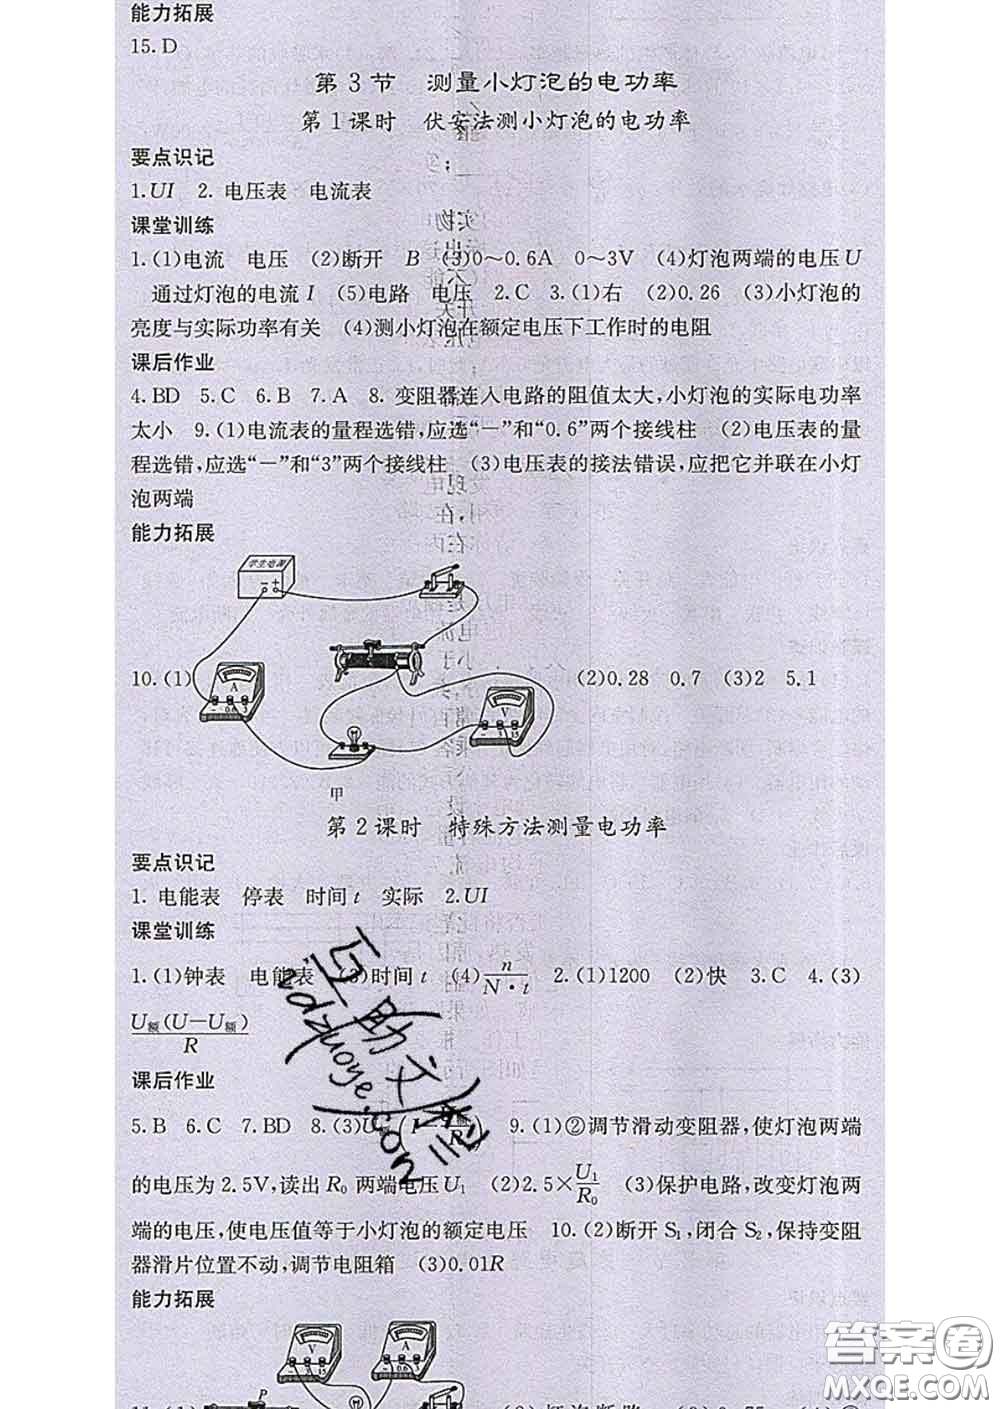 能力拓展
15. D
第3节 测量小灯泡的电功率
第1课时 伏安法测小灯泡的电功率
要点识记
1. UI 2. 电压表 电流表
课堂训练
1. (1)电流 电压 (2)断开 B (3)0～0.6A 0～3V (4)灯泡两端的电压U
通过灯泡的电流I (5)电路 电压 2. C 3. (1)右 (2)0.26 (3)小灯泡的
亮度与实际功率有关 (4)测小灯泡在额定电压下工作时的电阻
课后作业
4. BD 5. C 6. B 7. A 8. 变阻器连入电路的阻值太大,小灯泡的实际电功率
太小 9. (1)电流表的量程选错,应选“－”和“0.6”两个接线柱 (2)电压表的量
程选错,应选“－”和“3”两个接线柱 (3)电压表的接法错误,应把它并联在小灯
泡两端
能力拓展
学生电源
10. (1) (2)0.28 0.7 (3)2 5.1
A
V
甲
第2课时 特殊方法测量电功率
要点识记
1. 电能表 停表 时间t 实际 2. UI
课堂训练
1. (1)钟表 电能表 (3)时间t (4) n/(N·t) 2. (1)1200 (2)快 3. C 4. (3)
U额(U－U额)/R
课后作业
5. B 6. C 7. BD 8. (3)U 9. (1)②调节滑动变阻器,使灯泡两端
的电压为2.5V,读出R₀两端电压U₁ (2)2.5×U₁/R₀ (3)保护电路,改变灯泡两
端的电压,使电压值等于小灯泡的额定电压 10. (2)断开S₁,闭合S₂,保持变阻
器滑片位置不动,调节电阻箱 (3)0.01R
能力拓展
V
A
P
答案圈
MXQE.COM